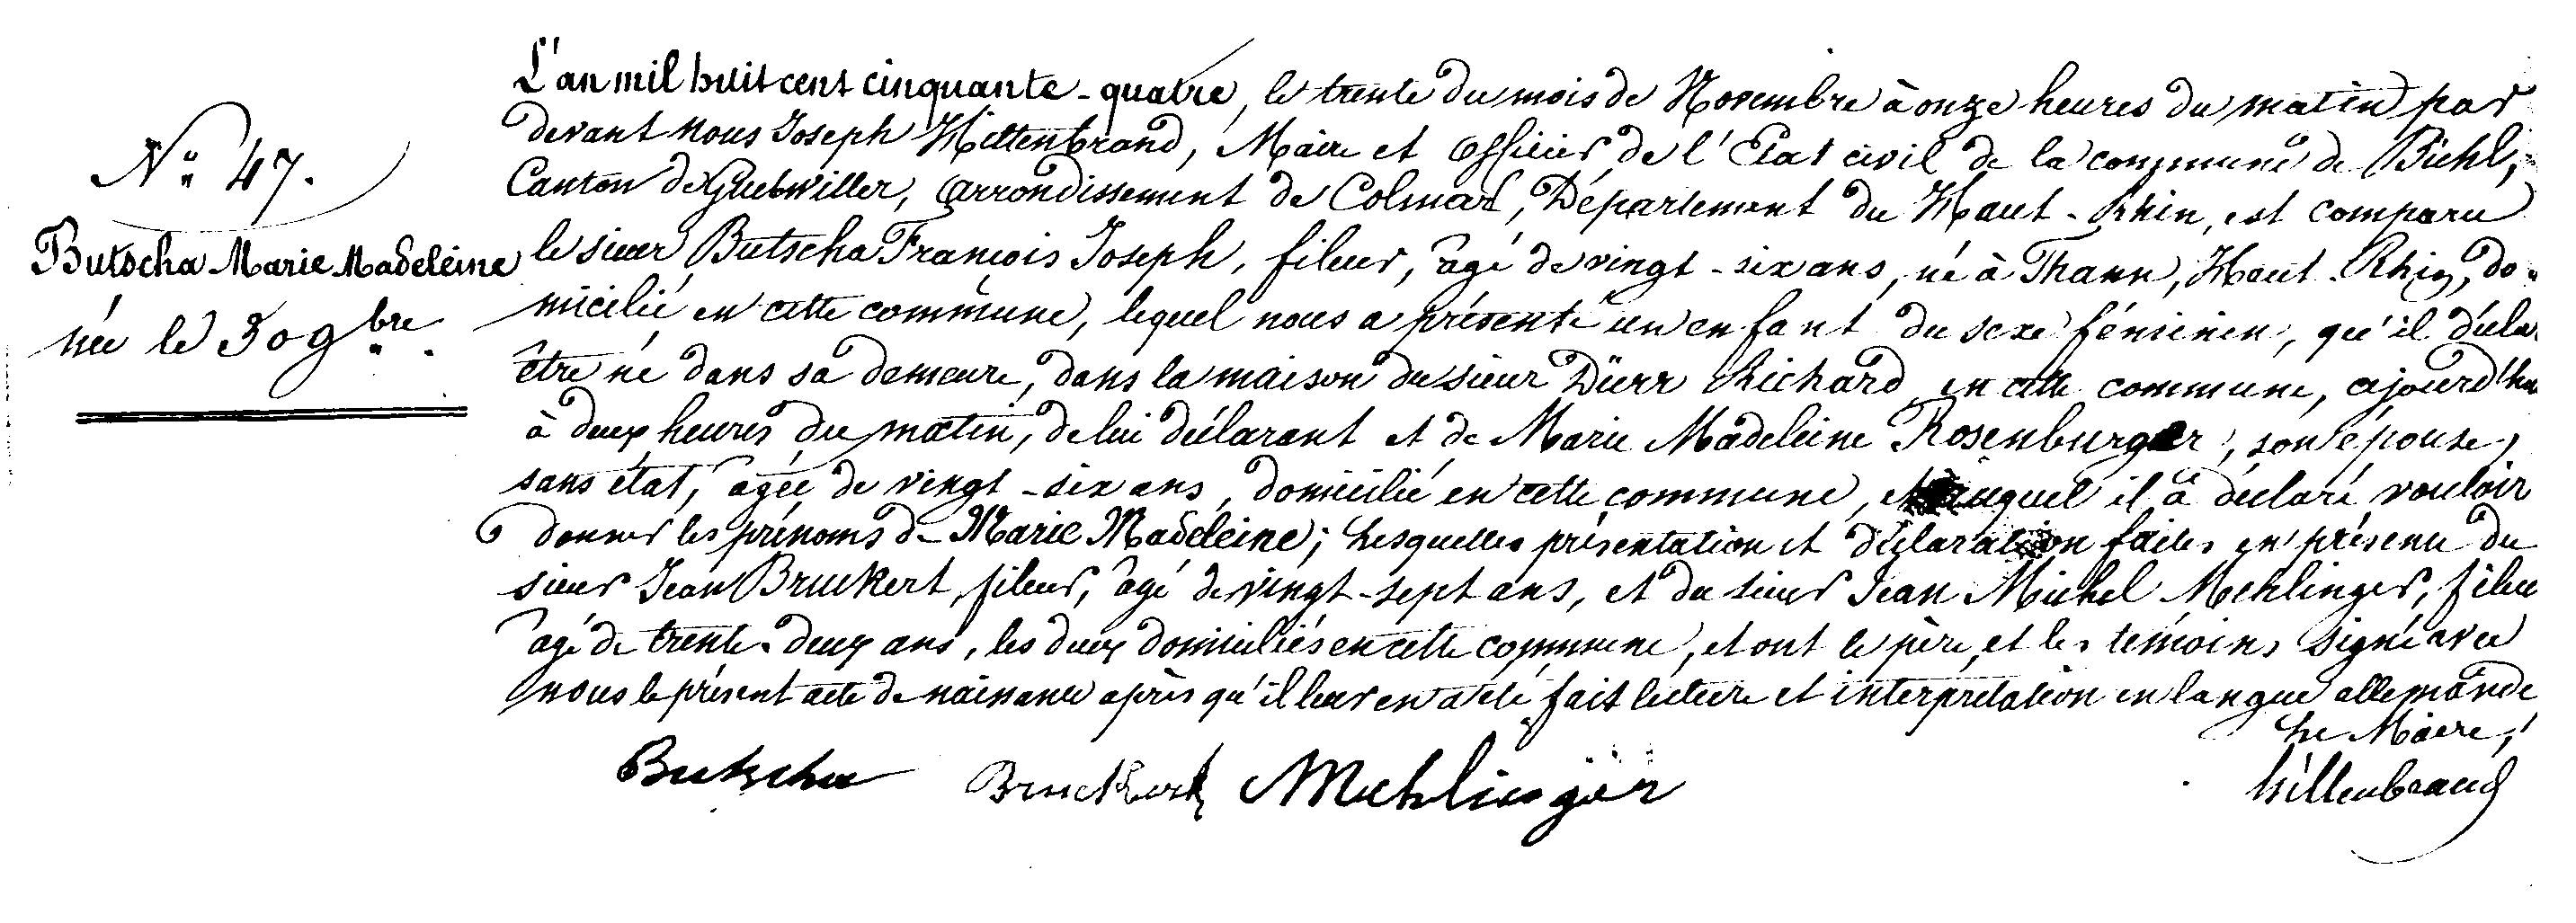 N° 47.
Butscha Marie Madeleine
née le 30 9bre
L'an mil huit cent cinquante-quatre, le trente du mois de Novembre à onze heures du matin par
devant nous Joseph Hiltenbrand, Maire et officier de l'Etat civil de la commune de Bühl,
Canton de Guebwiller, arrondissement de Colmar, Département du Haut-Rhin, est comparu
le sieur Butscha François Joseph, fileur, âgé de vingt-six ans, né à Thann, Haut-Rhin, do-
micilié en cette commune, lequel nous a présenté un enfant du sexe féminin, qu'il déclare
être né dans sa demeure, dans la maison du sieur Dürr Richard en cette commune, ajourd'hui
à deux heures du matin, de lui déclarant et de Marie Madeleine Rosenburger, son épouse,
sans état, agée de vingt-six ans, domicilié en cette commune, et auquel il a déclaré vouloir
donner les prénoms de Marie Madeleine; Lesquelles présentation et déclaration faites en présence du
sieur Jean Bruckert, fileur, âgé de vingt-sept ans, et du sieur Jean Michel Mehlinger, fileur
agé de trente-deux ans, les deux domiciliés en cette commune, et ont le père, et les témoins signé avec
nous le présent acte de naissance après qu'il leur en a été fait lecture et interprétation en langue allemande
Le Maire,
Butscha Bruckert Mehlinger Hiltenbrand